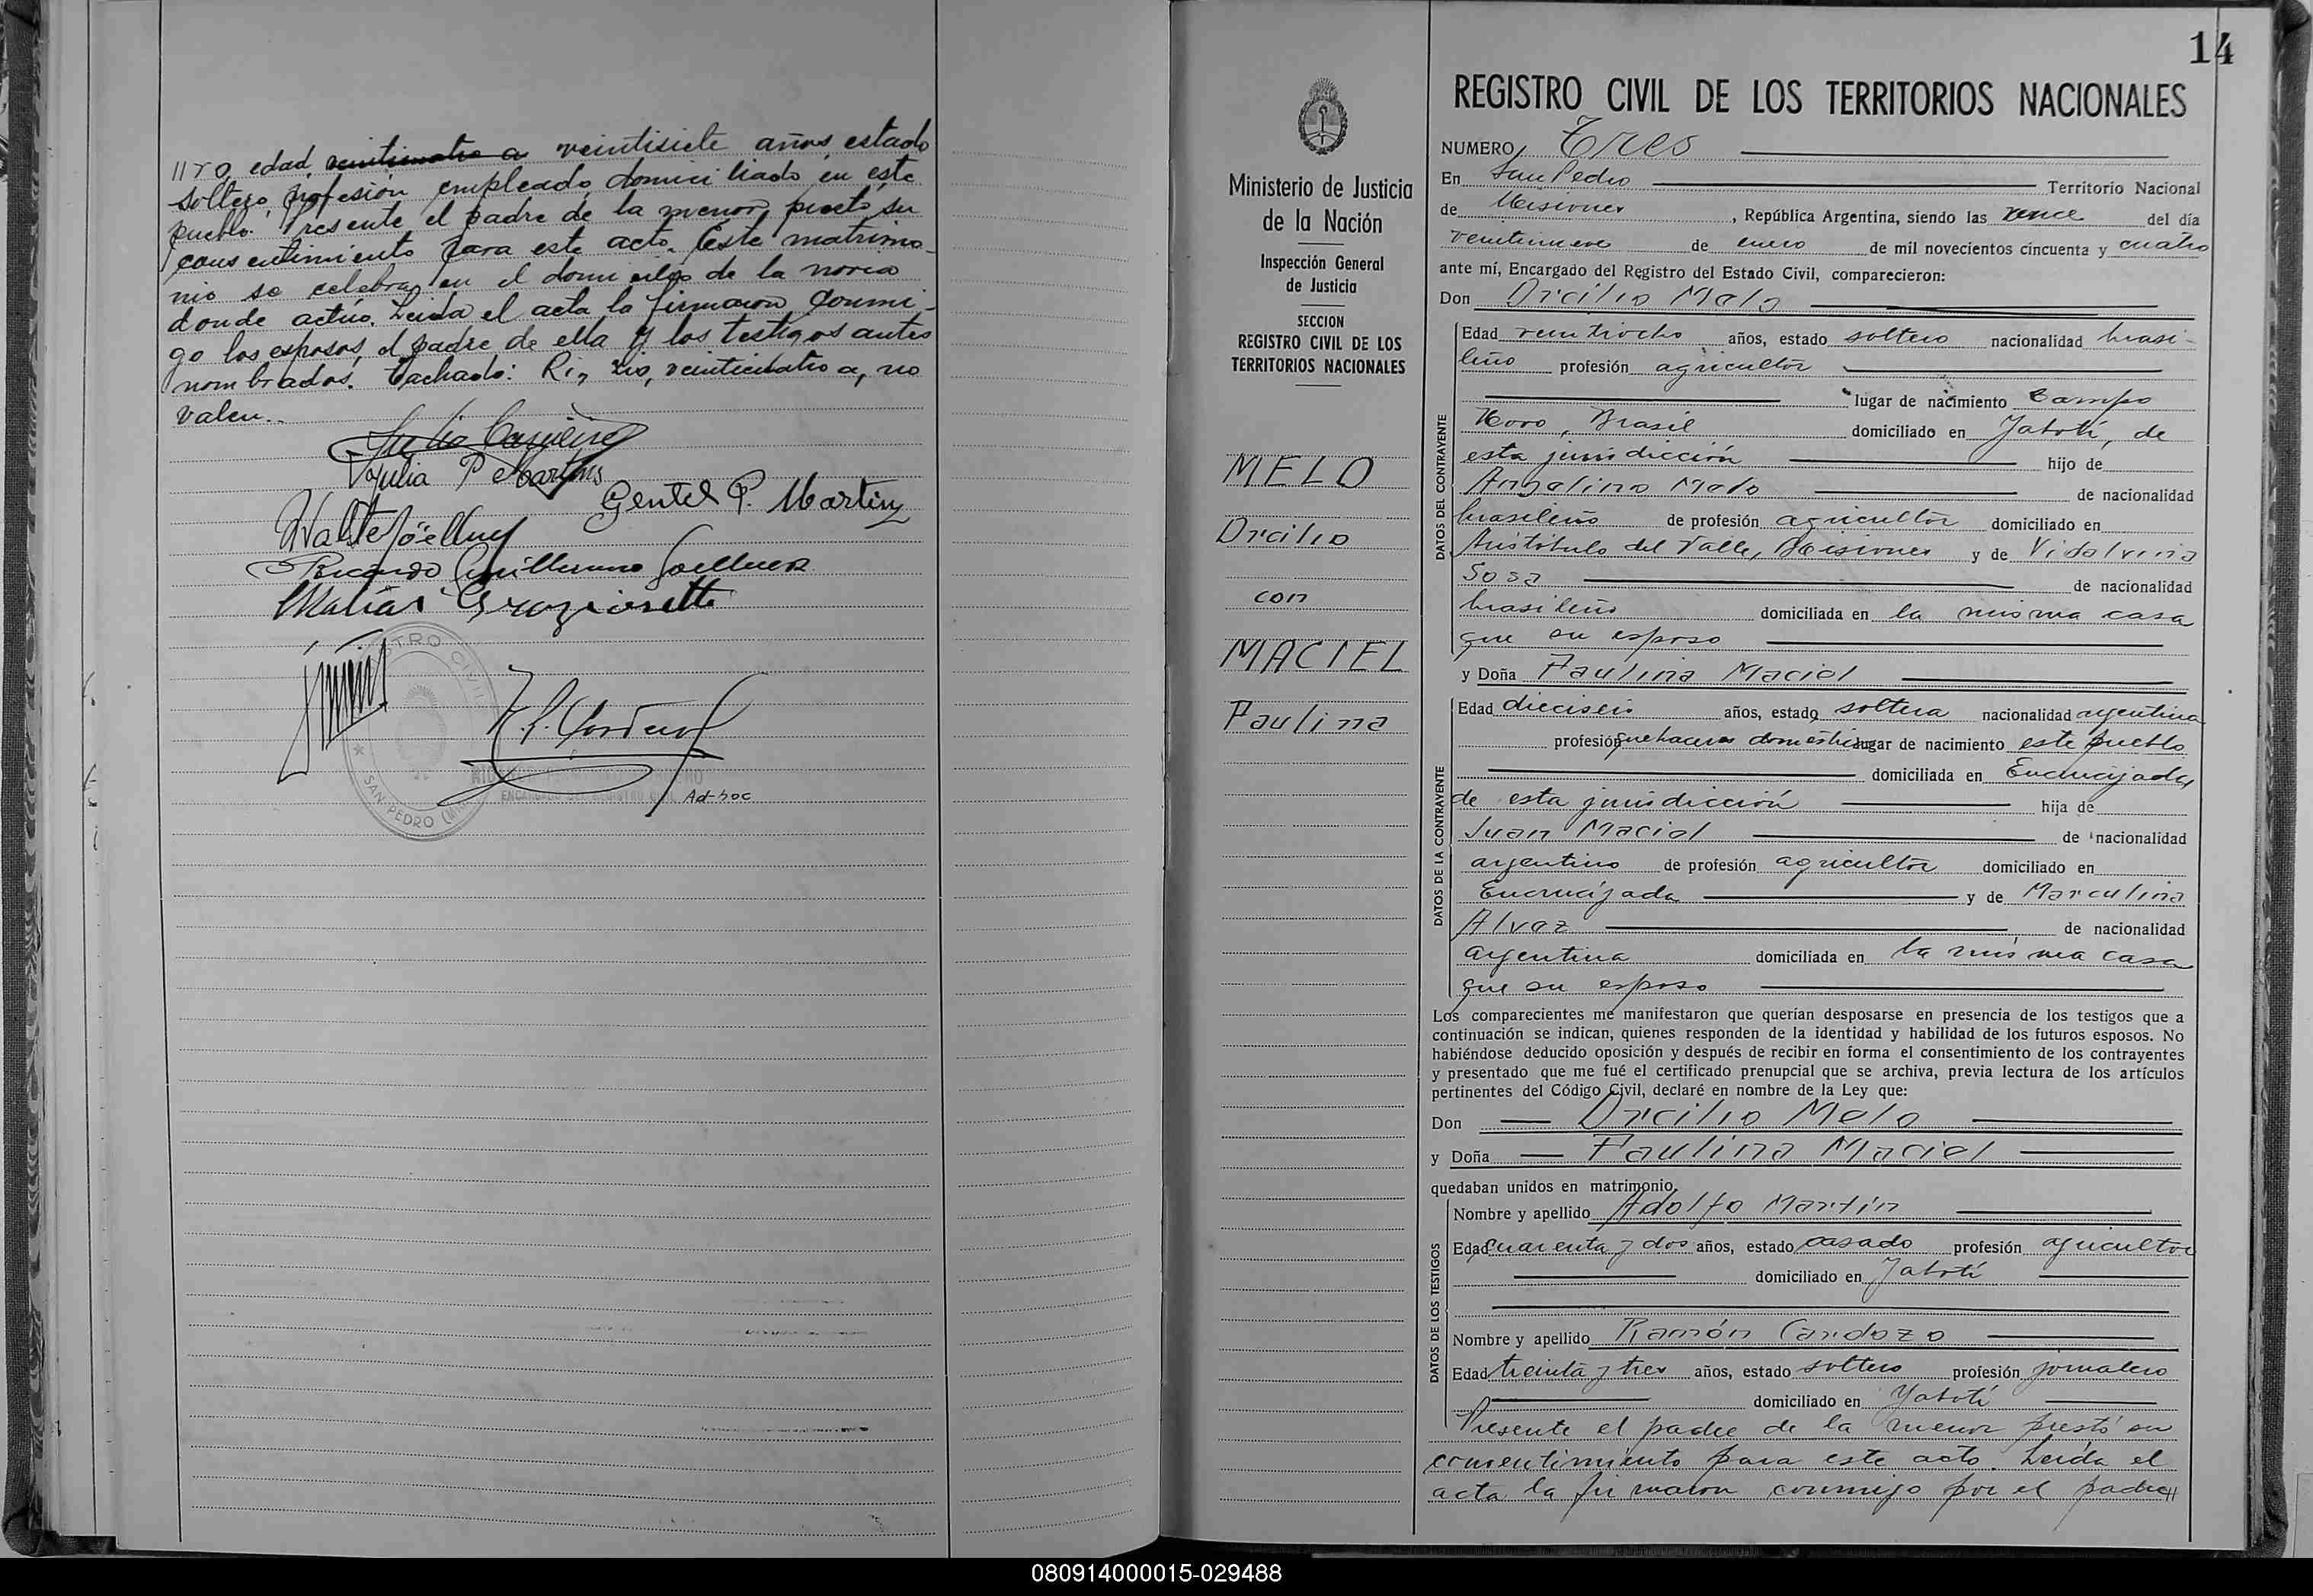 //ro, edad, veinticuatro a veintisiete años, estado
soltero, profesión empleado, domiciliado en este
pueblo. Presente el padre de la menor, prestó su
consentimiento para este acto. Este matrimo-
nio se celebra en el domicilio de la novia
donde actúo. Leída el acta la firmaron conmi-
go los esposos, el padre de ella y los testigos antes
nombrados. Tachado: Ri, veinticuatro a, no
valen.-
Julia P Martins
Gentil P. Martins
Ricardo Guillermo Soellner
Matias
REGISTRO CIVIL
SAN PEDRO
ENCARGADO DEL REGISTRO CIVIL
Ad-hoc
14
Ministerio de Justicia
de la Nación
Inspección General
de Justicia
SECCION
REGISTRO CIVIL DE LOS
TERRITORIOS NACIONALES
MELO
Orcilio
con
MACIEL
Paulina
REGISTRO CIVIL DE LOS TERRITORIOS NACIONALES
NUMERO Tres
En San Pedro Territorio Nacional
de Misiones, República Argentina, siendo las once del día
veintinueve de enero de mil novecientos cincuenta y cuatro
ante mí, Encargado del Registro del Estado Civil, comparecieron:
Don Orcilio Melo
DATOS DEL CONTRAYENTE
Edad veintiocho años, estado soltero nacionalidad brasi-
leño profesión agricultor
lugar de nacimiento Campo
Novo, Brasil domiciliado en Yabotí, de
esta jurisdicción hijo de
Angelino Melo de nacionalidad
brasileño de profesión agricultor domiciliado en
Aristóbulo del Valle, Misiones y de Vidalvina
Sosa de nacionalidad
brasileña domiciliada en la misma casa
que su esposo
y Doña Paulina Maciel
DATOS DE LA CONTRAYENTE
Edad dieciseis años, estado soltera nacionalidad argentina
profesión quehaceres domésticos lugar de nacimiento este pueblo
domiciliada en Encrucijada
de esta jurisdicción hija de
Juan Maciel de nacionalidad
argentino de profesión agricultor domiciliado en
Encrucijada y de Marculina
Alvez de nacionalidad
argentina domiciliada en la misma casa
que su esposo
Los comparecientes me manifestaron que querían desposarse en presencia de los testigos que a
continuación se indican, quienes responden de la identidad y habilidad de los futuros esposos. No
habiéndose deducido oposición y después de recibir en forma el consentimiento de los contrayentes
y presentado que me fué el certificado prenupcial que se archiva, previa lectura de los artículos
pertinentes del Código Civil, declaré en nombre de la Ley que:
Don Orcilio Melo
y Doña Paulina Maciel
quedaban unidos en matrimonio.
DATOS DE LOS TESTIGOS
Nombre y apellido Adolfo Martín
Edad cuarenta y dos años, estado casado profesión agricultor
domiciliado en Yabotí
Nombre y apellido Ramón Cardozo
Edad treinta y tres años, estado soltero profesión jornalero
domiciliado en Yabotí
Presente el padre de la menor prestó su
consentimiento para este acto. Leída el
acta la firmaron conmigo por el padre//
080914000015-029488